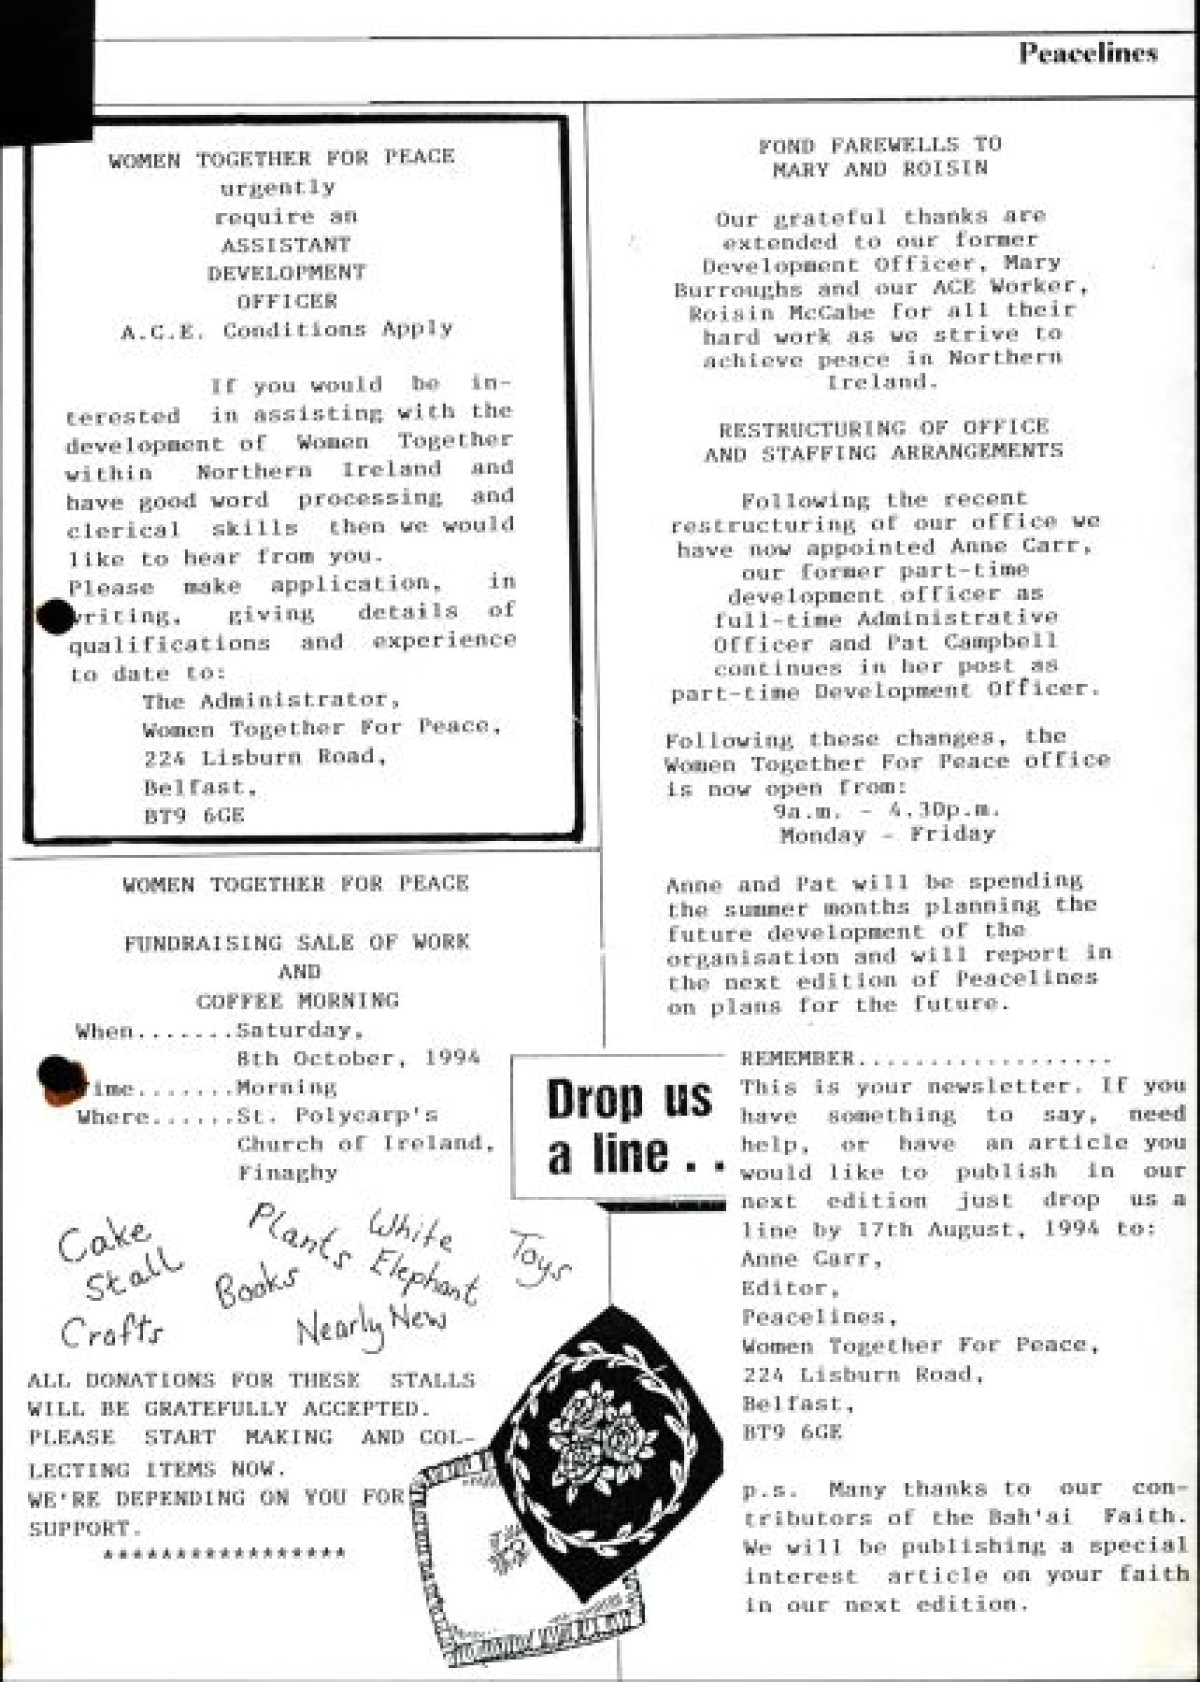 Peacelines
WOMEN TOGETHER FOR PEACE
urgently
require an
ASSISTANT
DEVELOPMENT
OFFICER
A.C.E. Conditions Apply
If you would be in-
terested in assisting with the
development of Women Together
within Northern Ireland and
have good word processing and
clerical skills then we would
like to hear from you.
Please make application, in
writing, giving details of
qualifications and experience
to date to:
The Administrator,
Women Together For Peace,
224 Lisburn Road,
Belfast,
BT9 6GE
WOMEN TOGETHER FOR PEACE
FUNDRAISING SALE OF WORK
AND
COFFEE MORNING
When.......Saturday,
8th October, 1994
Time.......Morning
Where......St. Polycarp's
Church of Ireland,
Finaghy
Cake
Stall
Crafts
Plants
Books
White
Elephant
Nearly New
Toys
ALL DONATIONS FOR THESE STALLS
WILL BE GRATEFULLY ACCEPTED.
PLEASE START MAKING AND COL-
LECTING ITEMS NOW.
WE'RE DEPENDING ON YOU FOR
SUPPORT.
*****************
FOND FAREWELLS TO
MARY AND ROISIN
Our grateful thanks are
extended to our former
Development Officer, Mary
Burroughs and our ACE Worker,
Roisin McCabe for all their
hard work as we strive to
achieve peace in Northern
Ireland.
RESTRUCTURING OF OFFICE
AND STAFFING ARRANGEMENTS
Following the recent
restructuring of our office we
have now appointed Anne Carr,
our former part-time
development officer as
full-time Administrative
Officer and Pat Campbell
continues in her post as
part-time Development Officer.
Following these changes, the
Women Together For Peace office
is now open from:
9a.m. - 4.30p.m.
Monday - Friday
Anne and Pat will be spending
the summer months planning the
future development of the
organisation and will report in
the next edition of Peacelines
on plans for the future.
Drop us
a line . .
REMEMBER..................
This is your newsletter. If you
have something to say, need
help, or have an article you
would like to publish in our
next edition just drop us a
line by 17th August, 1994 to:
Anne Carr,
Editor,
Peacelines,
Women Together For Peace,
224 Lisburn Road,
Belfast,
BT9 6GE
p.s. Many thanks to our con-
tributors of the Bah'ai Faith.
We will be publishing a special
interest article on your faith
in our next edition.